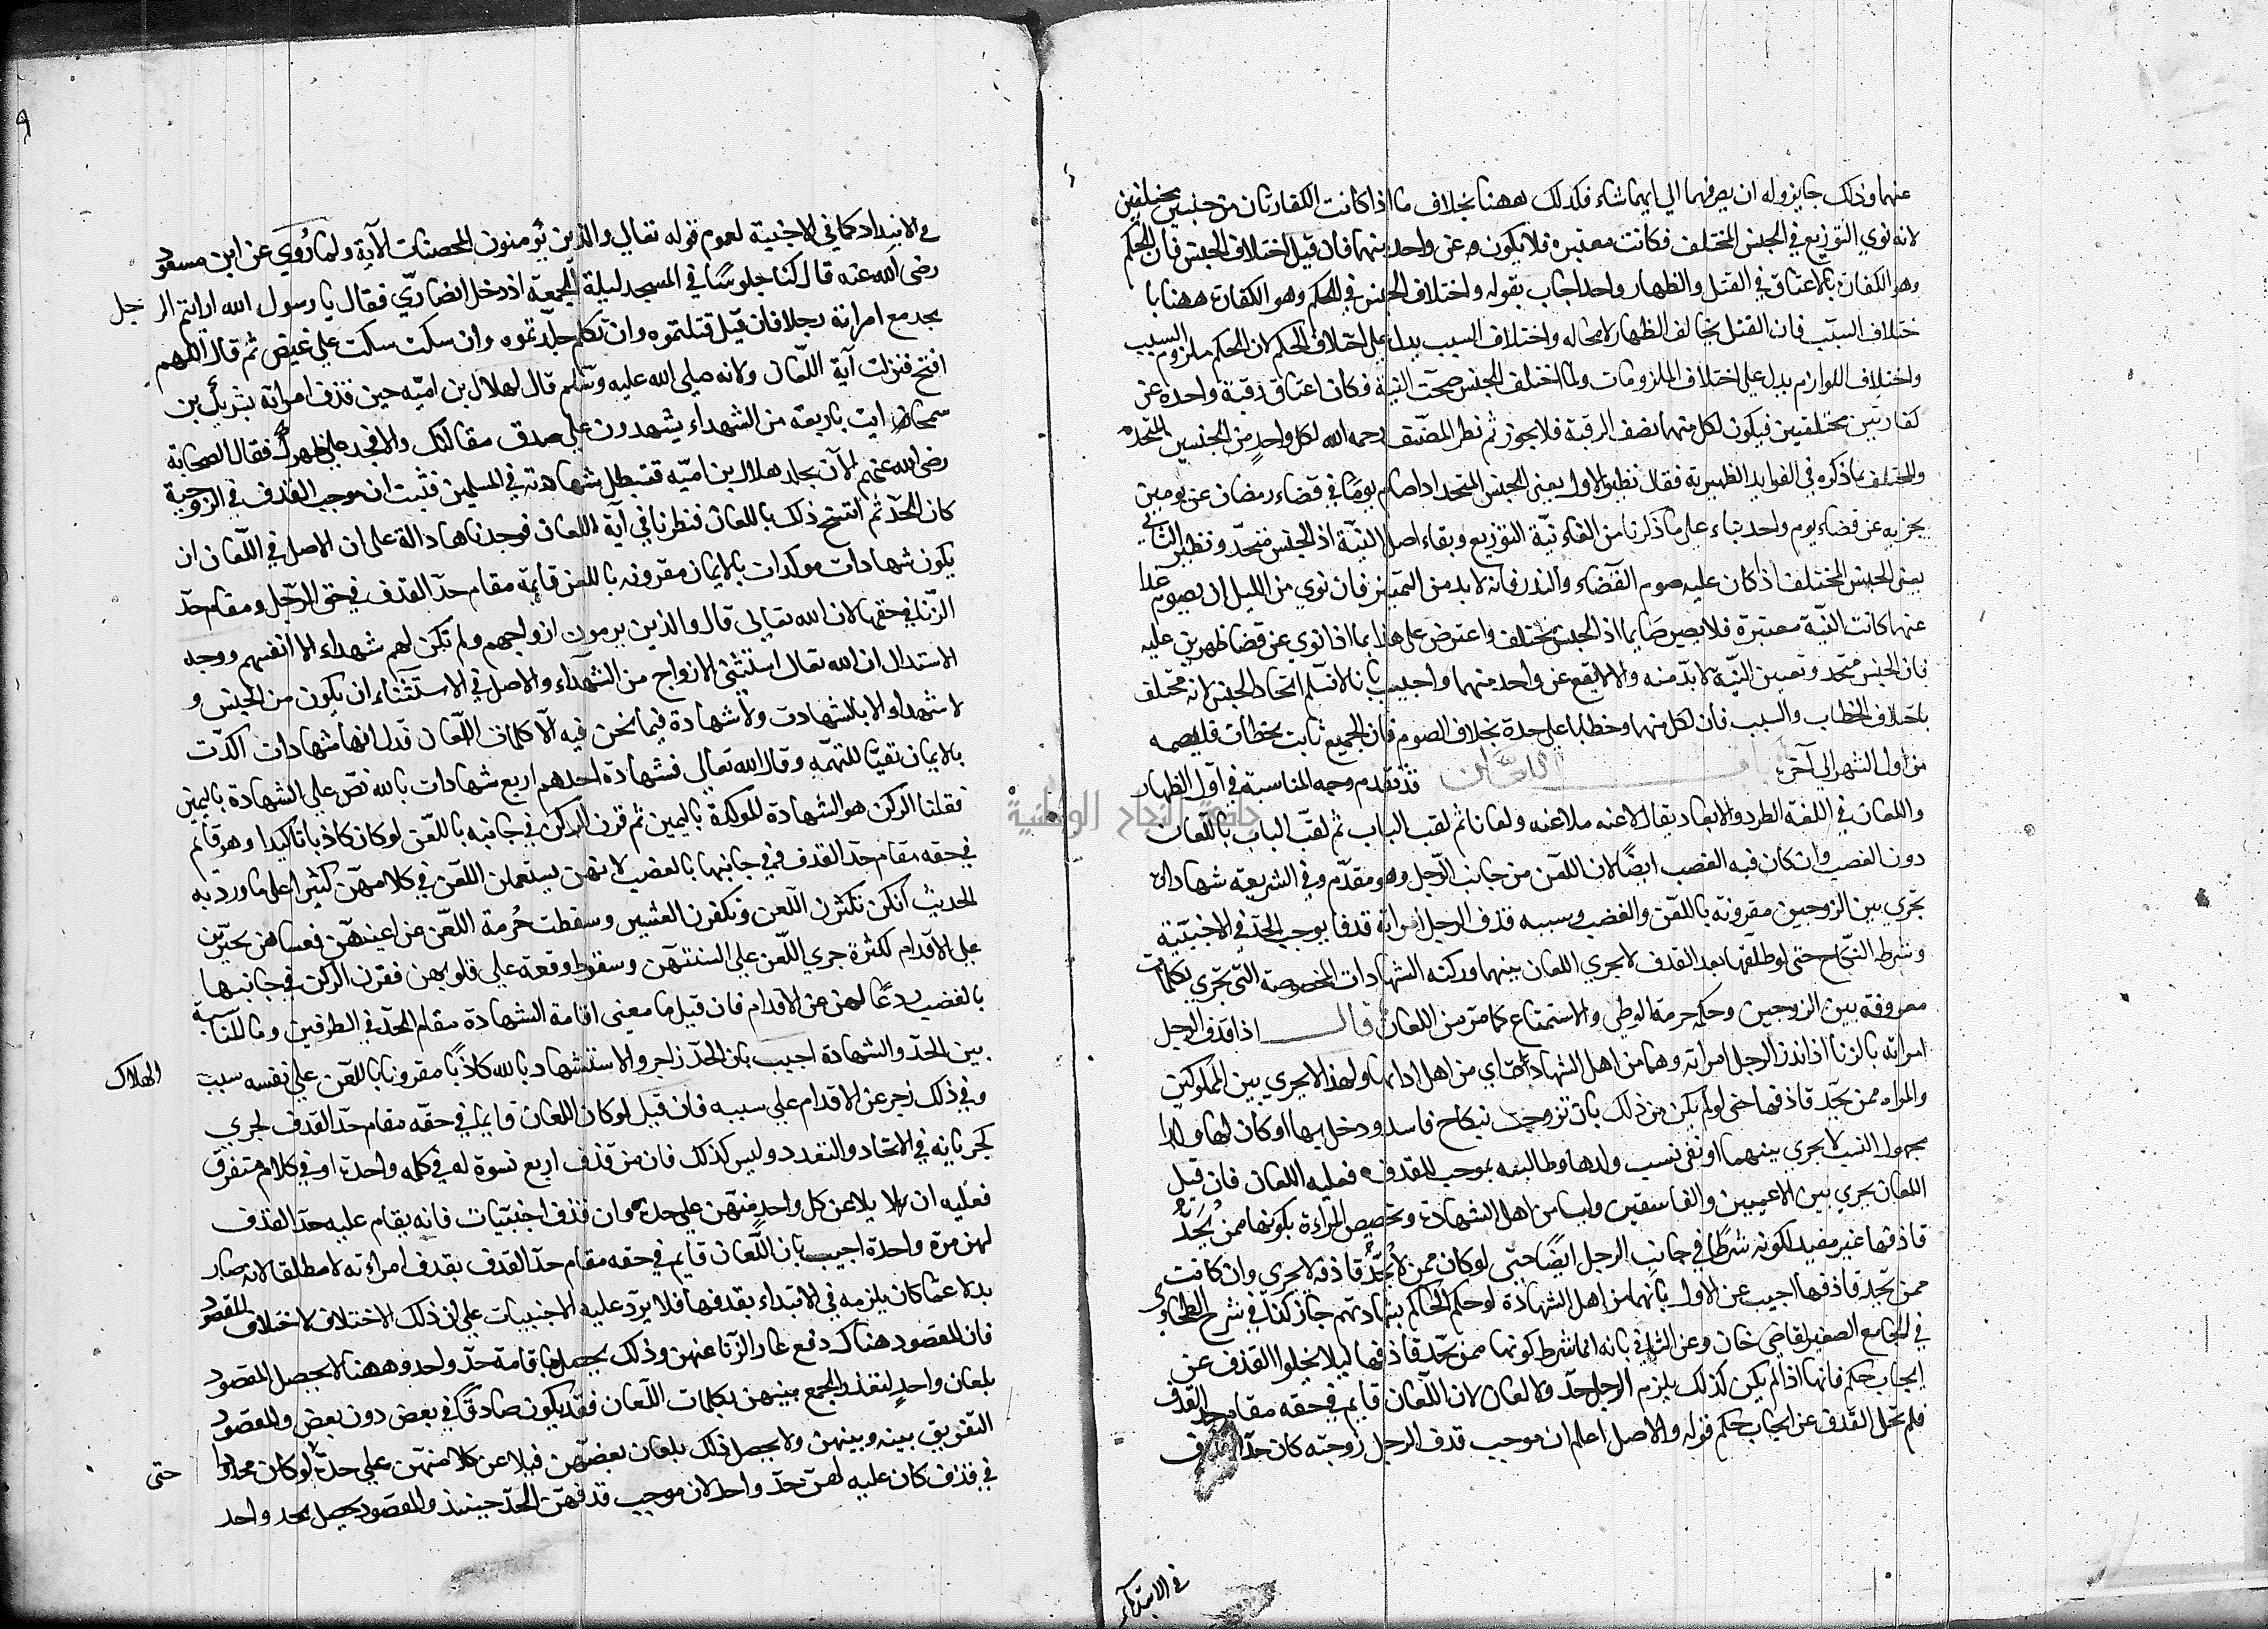 عنهما وذلك جايز وله ان يصرفهما الي ايهما شاء فكذلك ههنا بخلاف ما اذا كانت الكفارتان من جنسين مختلفين
لانه نوي التوزيع في الجنس المختلف فكانت معتبره فلا يكون عن واحد منهما فان قيل اختلاف الجنس فان الحكم
وهو الكفارة بالاعتاق في القتل والظهار واحد اجاب بقوله واختلاف الجنس في الحكم وهو الكفارة ههنا با
ختلاف السبب فان القتل يخالف الظهار لا محاله واختلاف السبب يدل علي اختلاف الحكم لان الحكم ملزوم السبب
واختلاف اللوازم يدل علي اختلاف الملزومات ولما اختلف الجنس صحت النية فكان اعتاق رقبة واحدة عن
كفارتين مختلفتين فيكون لكل منهما نصف الرقبة فلا يجوز ثم نظر المصنف رحمه الله لكل واحد من الجنسين المتحد
والمختلف بما ذكره في الفوايد الظهيرية فقال نظير الاول يعني الجنس المتحد اذا صام يوما في قضاء رمضان عن يومين
يجزيه عن قضاء يوم واحد بناء علي ما ذكرنا من الغاء نية التوزيع وبقاء اصل النية اذ الجنس متحد ونظير الثاني
يعني الجنس المختلف اذا كان عليه صوم القضاء والنذر فانه لا بد من التمييز فان نوي من الليل ان يصوم غدا
عنهما كانت النية معتبرة فلا يصير صايما اذ الجنس مختلف واعترض علي هذا بما اذا نوي عن قضا ظهرين عليه
فان الجنس متحد وتعيين النية لا بد منه والا لا يقع عن واحد منهما واجيب بانا لا نسلم اتحاد الجنس لانه مختلف
باختلاف الخطاب والسبب فان لكل منهما وخطابا علي حدة بخلاف الصوم فان الجميع ثابت بخطاب فليصمه
من اول الشهر الي آخره باب اللعان قد تقدم وجه المناسبة في اول الظهار
واللعان في اللغة الطرد والابعاد يقال لاعنه ملاعنه ولعانا ثم لقب الباب ثم لقب الباب باللعان
دون الغضب وان كان فيه الغضب ايضا لان اللعن من جانب الرجل وهو مقدم وفي الشريعة شهادات
تجري بين الزوجين مقرونة باللعن والغضب وسببه قذف الرجل امراته قذفا يوجب الحد في الاجنبية
وشرطه النكاح حتي لو طلقها بعد القذف لا يجري اللعان بينهما وركنه الشهادات المخصوصة التي تجري بكلمات
معروفة بين الزوجين وحكمه حرمة الوطي والاستمتاع كما من اللعان قال اذا قذف الرجل
امراته بالزنا اذا قذف الرجل امراته وهما من اهل الشهادة اي من اهل ادائها ولهذا لا يجري بين المملوكين
والمراه ممن يحد قاذفها حتي لو لم يكن من ذلك بان تزوجت بنكاح فاسد ودخل بها او كان لها ولد
مجهول النسب لا يجري بينهما او نفي نسب ولدها وطالبته بموجب القذف فعليه اللعان فان قيل
اللعان يجري بين الاعميين والفاسقين وليسا من اهل الشهادة وتخصيص المراة بكونها ممن يحد
قاذفها غير مفيد لكونه شرطا في جانب الرجل ايضا حتي لو كان ممن لا يحد قاذفه لا يجري وان كانت
ممن يحد قاذفها اجيب عن الاول بانهما من اهل الشهادة لو حكم الحاكم بشهادتهم جاز كذا في شرح الطحاوي
في الجامع الصغير لقاضي خان وعن الثاني بانه انما شرط كونها ممن يحد قاذفها ليلا يخلوا القذف عن
ايجاب حكم فانها اذا لم يكن كذلك يلزم الرجل حد ولا لعان لان اللعان قايم في حقه مقام حد القذف
فلم يخل القذف عن ايجاب حكم قوله والاصل اعلم ان موجب قذف الرجل زوجته كان حد القذف
في الابتداء
في الابتداء كما في الاجنبية لعموم قوله تعالي والذين يرمون المحصنات الآية ولما رُوي عن ابن مسعود
رضي الله عنه قال كنا جلوسا في المسجد ليلة الجمعة اذ دخل انصاري فقال يا رسول الله ارايتم الرجل
يجد مع امراته رجلا فان قتل قتلتموه وان تكلم جلدتموه وان سكت سكت علي غيض ثم قال اللهم
افتح فنزلت آية اللعان ولانه صلي الله عليه وسلم قال لهلال بن امية حين قذف امراته بشريك بن
سمحاء ايت باربعة من الشهداء يشهدون علي صدق مقالتك والا فحد علي ظهرك فقال الصحابة
رضي الله عنهم الآن يجلد هلال بن امية فتبطل شهادته في المسلمين فثبت ان موجب القذف في الزوجية
كان الحد ثم انتسخ ذلك باللعان فنظرنا في آية اللعان فوجدناها دالة علي ان الاصل في اللعان ان
يكون شهادات موكدات بالايمان مقرونه باللعن قايمة مقام حد القذف في حق الرجل ومقام حد
الزنا في حقها لان الله تعالي قال والذين يرمون ازواجهم ولم تكن لهم شهداء الا انفسهم ووجه
الاستدلال ان الله تعال استثني الازواج من الشهداء والاصل في الاستثناء ان يكون من الجنس و
لا شهداء الا بالشهادت ولا شهادة فيما نحن فيه الا كلمات اللعان فدل انها شهادات اكدت
بالايمان نفيا للتهمه وقال الله تعالي فشهادة احدهم اربع شهادات بالله نص علي الشهادة باليمين
فقلنا الركن هو الشهادة الموكدة باليمين ثم قرن الركن في جانبه باللعن لو كان كاذبا تاكيدا وهو قايم
في حقه مقام حد القذف في جانبها بالغضب لانهن يستعملن اللعن في كلامهن كثيرا علي ما ورد به
الحديث انكن تكثرن اللعن وتكفرن العشير وسقطت حُرمة اللعن عن اعينهن فعساهن يجترين
علي الاقدام لكثرة جري اللعن علي السنتهن وسقوط وقعة علي قلوبهن فقرن الركن في جانبها
بالغضب ردعا لهن عن الاقدام فان قيل ما معني اقامة الشهادة مقام الحد في الطرفين وما المناسبة
بين الحد والشهادة اجيب بان الحد زاجر والاستشهاد بالله كاذبا مقرونا باللعن علي نفسه سبب الهلاك
وفي ذلك زجر عن الاقدام علي سببه فان قيل لو كان اللعان قايما في حقه مقام حد القذف لجري
كجريانه في الاتحاد والتعدد وليس كذلك فان من قذف اربع نسوة له في كلمه واحدة او في كلام متفرق
فعليه ان يلاعن كل واحد منهن علي حدة وان قذف اجنبيات فانه يقام عليه حد القذف
لهن مرة واحدة اجيب بان اللعان قايم في حقه مقام حد القذف بقذف امراءته لا مطلقا لانه صار
بدلا عما كان يلزمه في الابتداء بقذفها فلا يرد عليه الاجنبيات علي ان ذلك الاختلاف لاختلاف المقصود
فان المقصود هناك دفع عار الزنا عنهن وذلك يحصل باقامة حد واحد وههنا لا يحصل المقصود
بلعان واحد لتعذر الجمع بينهن بكلمات اللعان فقد يكون صادقا في بعض دون بعض والمقصود
التفريق بينه وبينهن ولا يحصل ذلك بلعان بعضهن فيلاعن كلا منهن علي حدة حتى لو كان محدودا
في قذف كان عليه لهن حد واحد لان موجب قذفهن الحد حينيذ والمقصود يحصل بحد واحد
جامعة النجاح الوطنية